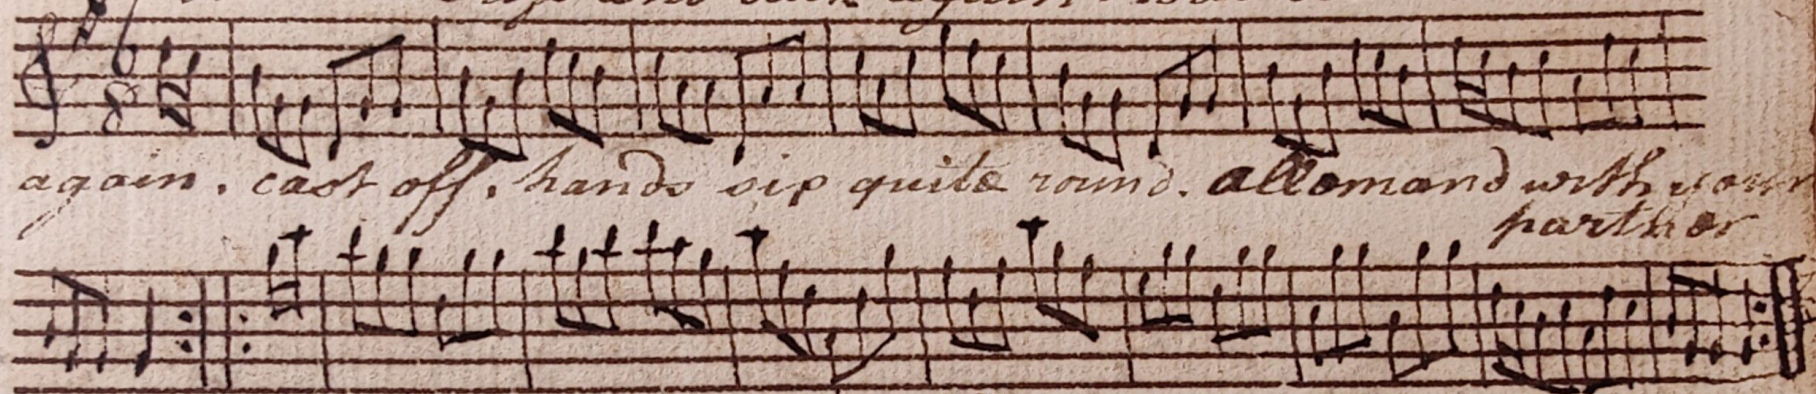 6
8
again. cast off. hands six quite round. allemand with your
partner